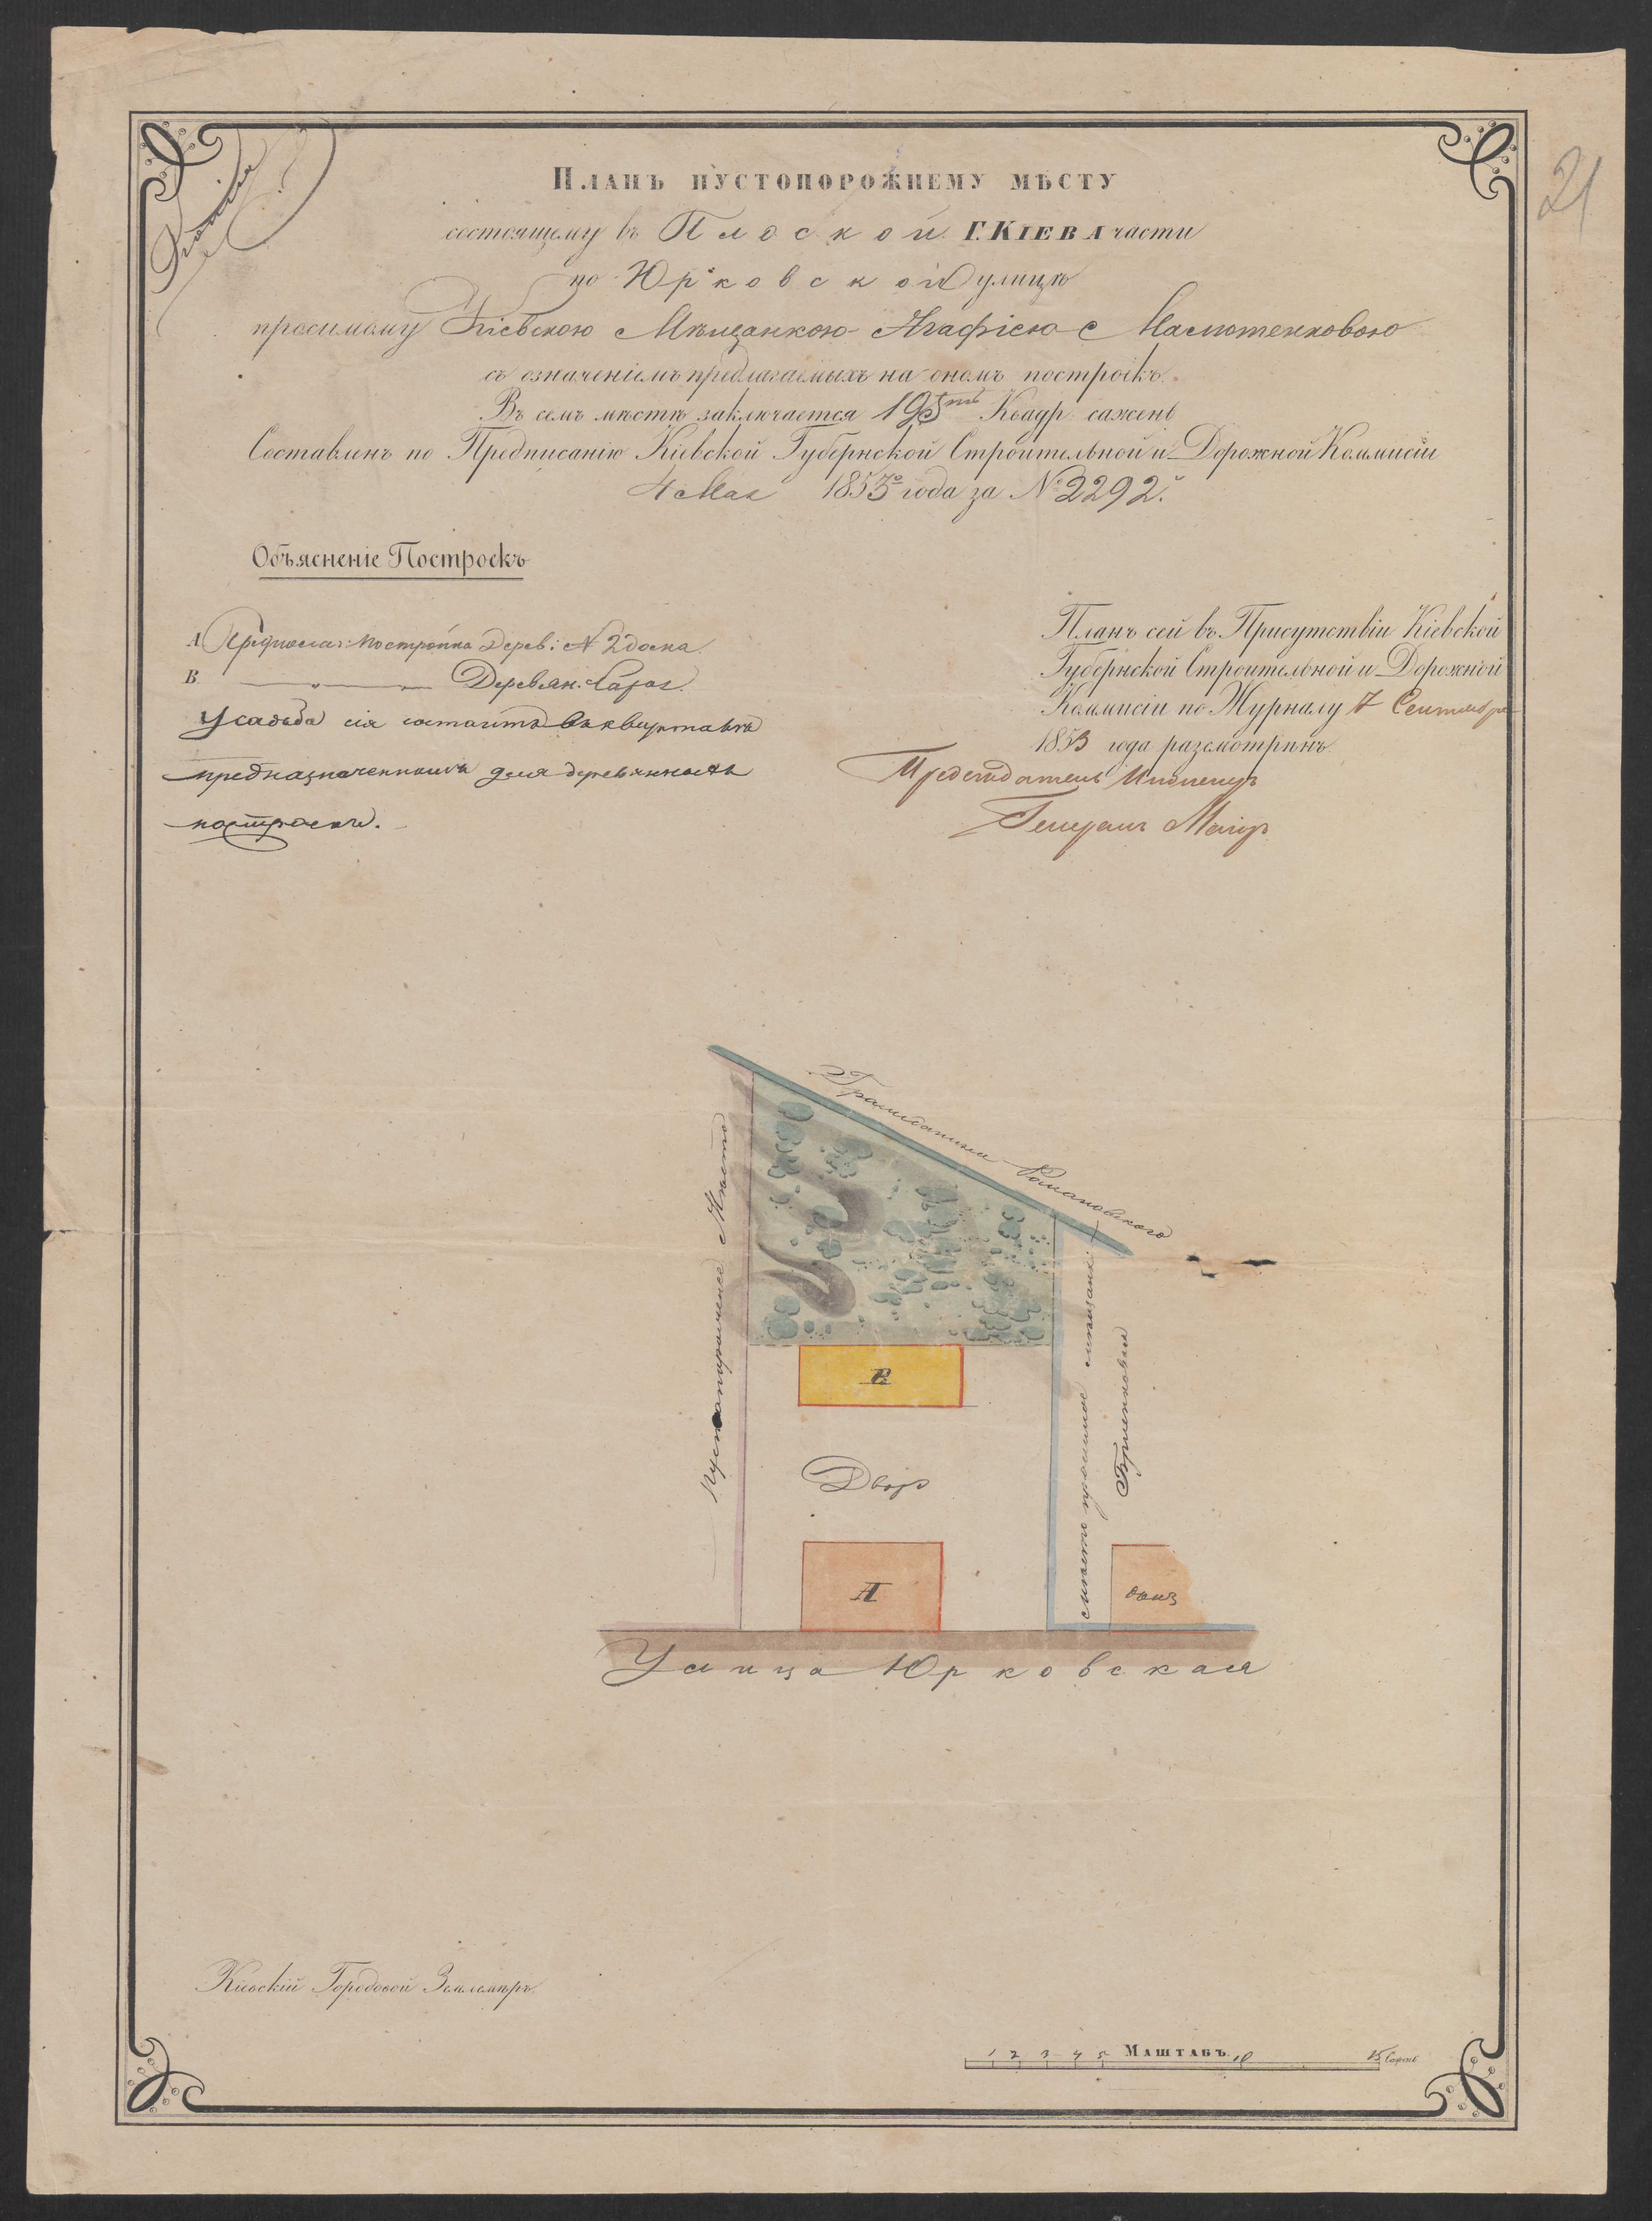 Копія
21
Планъ пустопорожнему мѣсту
состоящему въ Плоской Г. Кіева части
по Юрковской улицѣ
просимому Кіевскою Мѣщанкою Агафіею Маслютенковою
съ означеніемъ предлагаемыхъ на ономъ построекъ.
Въ семъ мѣстѣ заключается 195ть Квадр. сажень
Составленъ по Предписанію Кіевской Губернской Строительной и Дорожной Коммисіи
4 Мая 1853го года за № 2292.
Объясненіе Построекъ
А Предпола: постройка Дерев: № 2 дома
В — „ — Деревян. Сарая.
Усадьба сія состоитъ въ кварталѣ
предназначенномъ для деревянныхъ
построекъ.
Планъ сей въ Присутствіи Кіевской
Губернской Строительной и Дорожной
Коммисіи по Журналу 7 Сентября
1853 года разсмотрѣнъ
Предсѣдатель Инженеръ
Генералъ Маіоръ
Гражданина Романовского
Пустопорожнее Мѣсто
мѣсто просимое мѣщанк:
В
Дворъ
А
домъ
Улица Юрковская
Кіевскій Городовой Землемѣръ
1 2 3 4 5 Маштабъ 10 15 Сажень